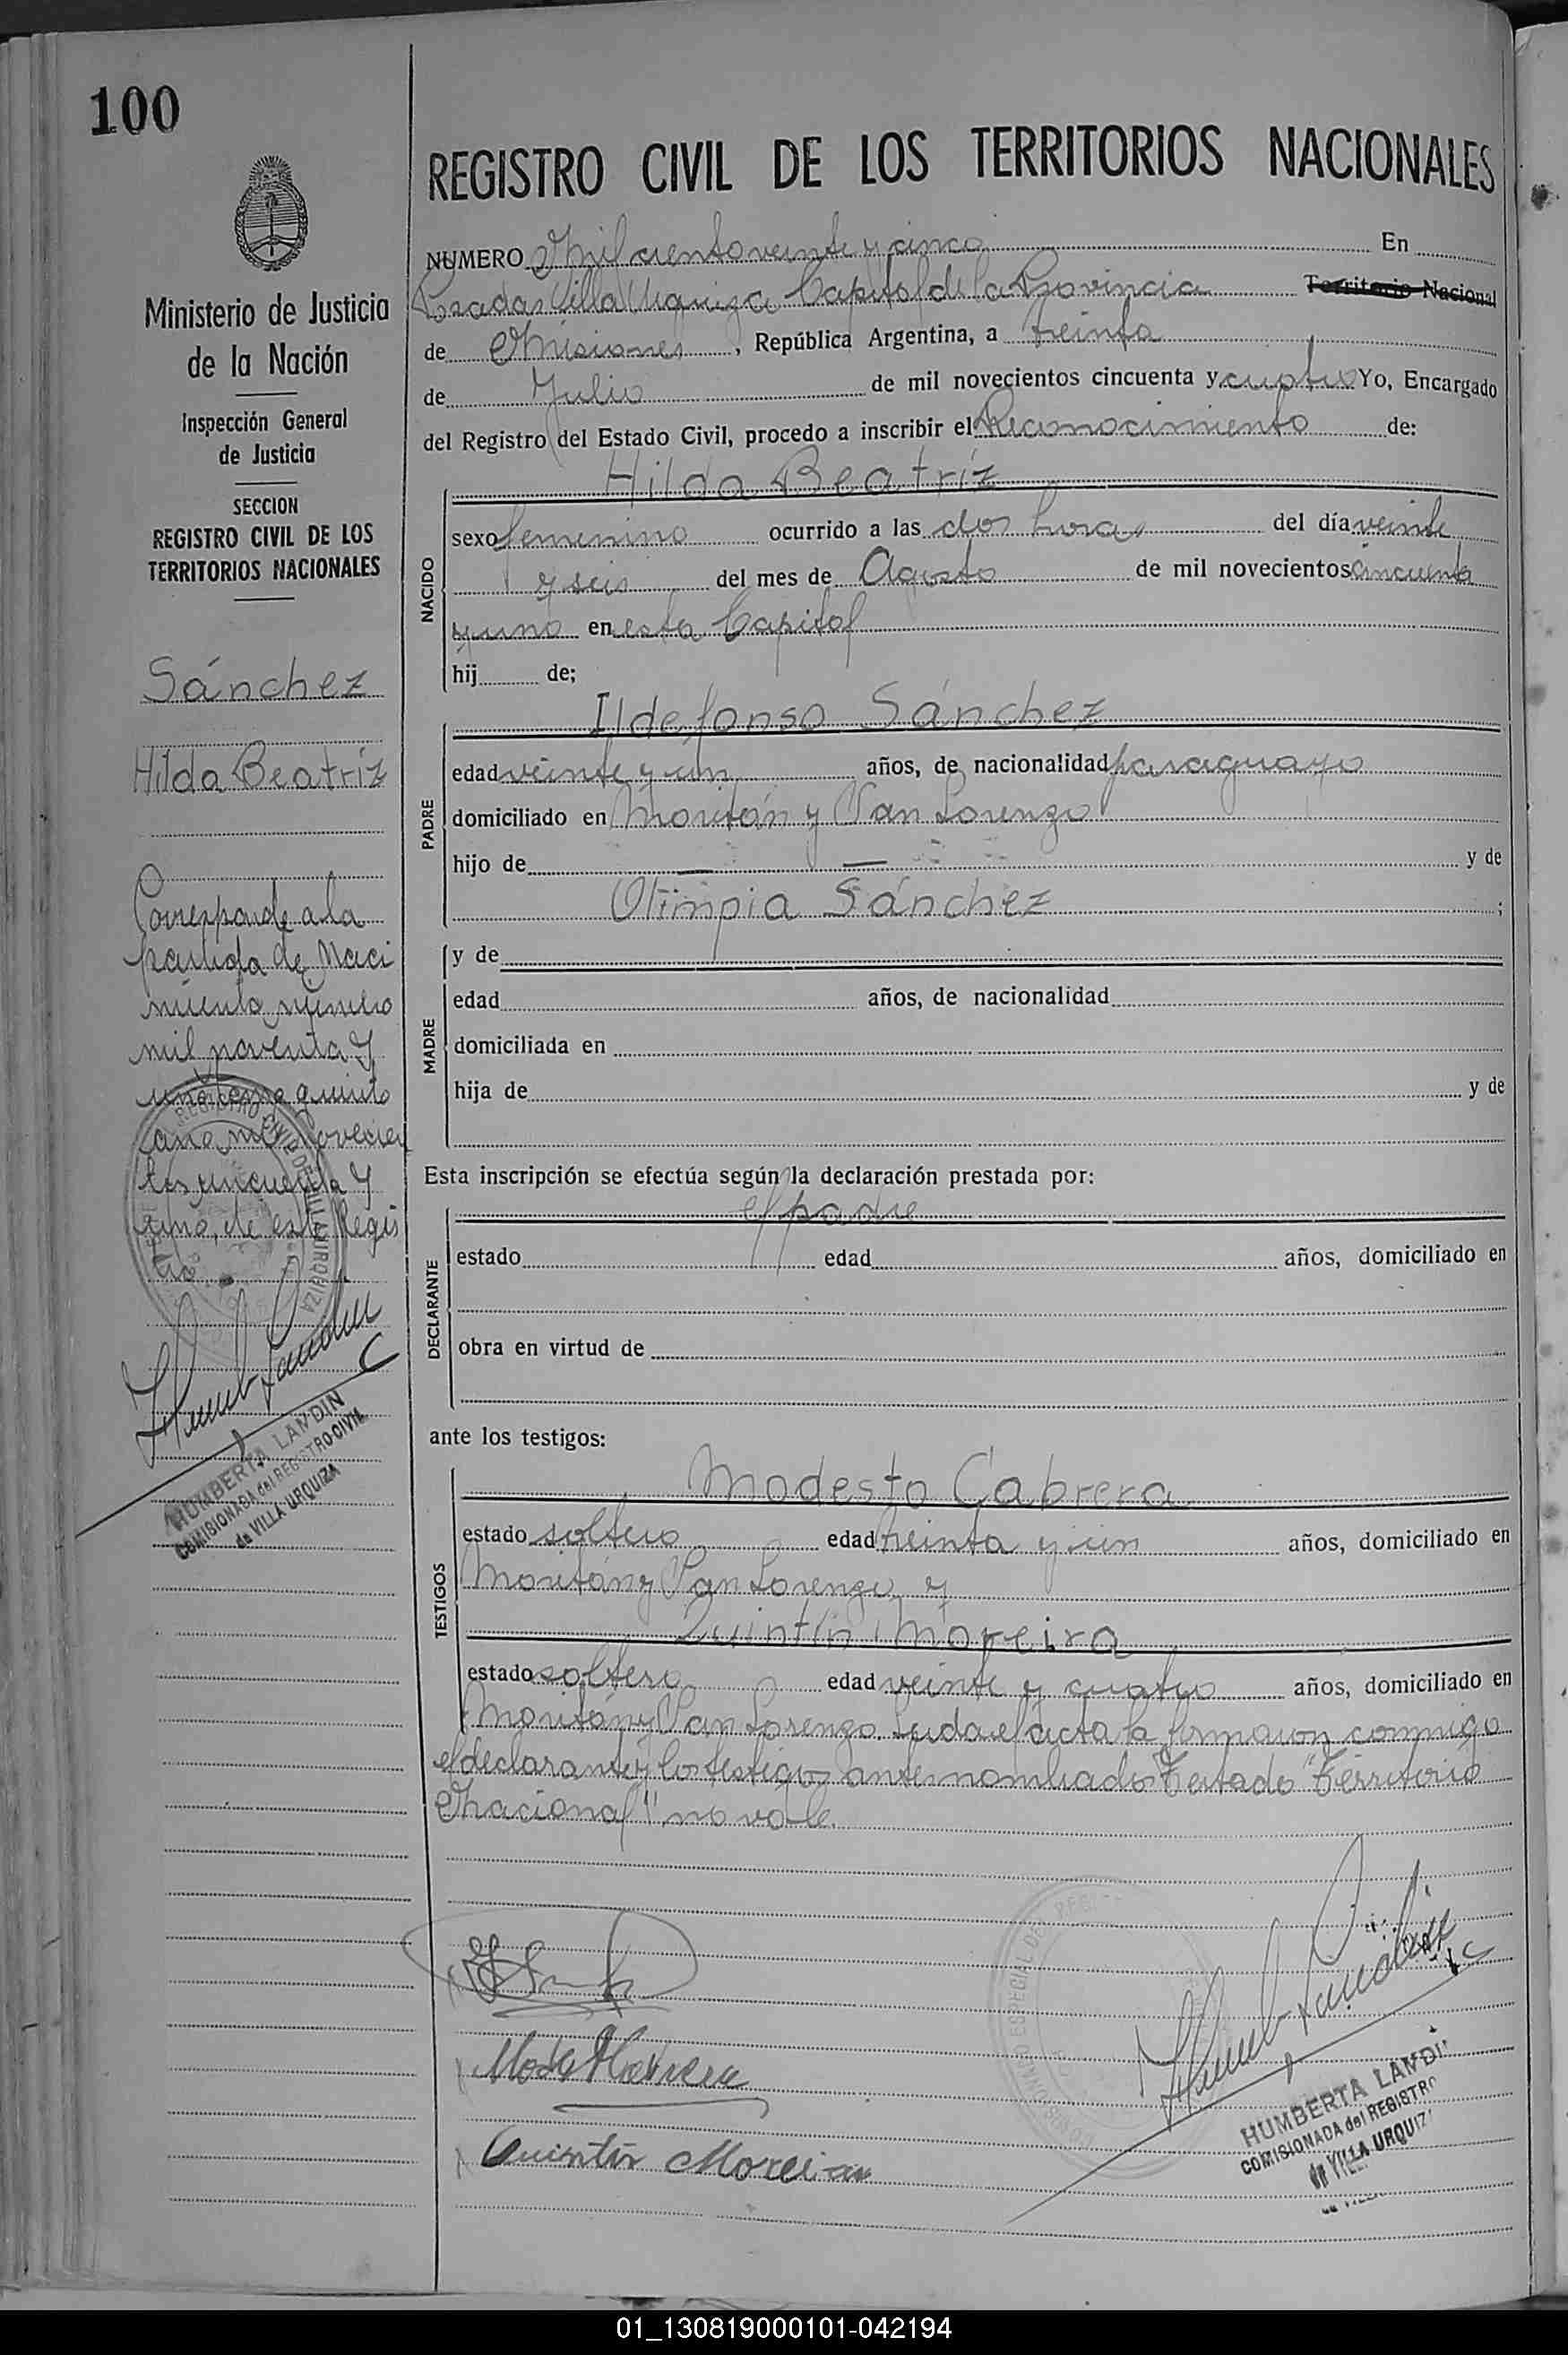 100
Ministerio de Justicia
de la Nación
Inspección General
de Justicia
SECCION
REGISTRO CIVIL DE LOS
TERRITORIOS NACIONALES
Sánchez
Hilda Beatríz
Corresponde a la
partida de Naci
miento número
mil noventa y
uno tomo quinto
año mil novecien
tos cincuenta y
uno, de este Regis
tro.
HUMBERTA LANDIN
COMISIONADA del REGISTRO CIVIL
de VILLA URQUIZA
REGISTRO CIVIL DE LOS TERRITORIOS NACIONALES
NUMERO Mil ciento veinte y cinco En
Posadas Villa Urquiza Capital de la Provincia Territorio Nacional
de Misiones, República Argentina, a treinta
de Julio de mil novecientos cincuenta y cuatro Yo, Encargado
del Registro del Estado Civil, procedo a inscribir el Reconocimiento de:
Hilda Beatríz
NACIDO
sexo femenino ocurrido a las dos horas del día veinte
y seis del mes de Agosto de mil novecientos cincuenta
y uno en esta Capital
hij de;
Ildefonso Sánchez
PADRE
edad veinte y un años, de nacionalidad paraguayo
domiciliado en Moritán y San Lorenzo
hijo de — — y de
Olimpia Sánchez ;
MADRE
y de
edad años, de nacionalidad
domiciliada en
hija de y de
Esta inscripción se efectúa según la declaración prestada por:
el padre
DECLARANTE
estado edad años, domiciliado en
obra en virtud de
ante los testigos:
Modesto Cabrera
TESTIGOS
estado soltero edad treinta y un años, domiciliado en
Moritán y San Lorenzo y
Quintín Moreira
estado soltero edad veinte y cuatro años, domiciliado en
Moritán y San Lorenzo. Leida el acta la firmaron conmigo
el declarante y los testigos antes nombrados Testado "Territorio
Nacional" no vale.
Quintin Moreira
HUMBERTA LANDI
COMISIONADA del REGISTRO
de VILLA URQUIZ
01_130819000101-042194